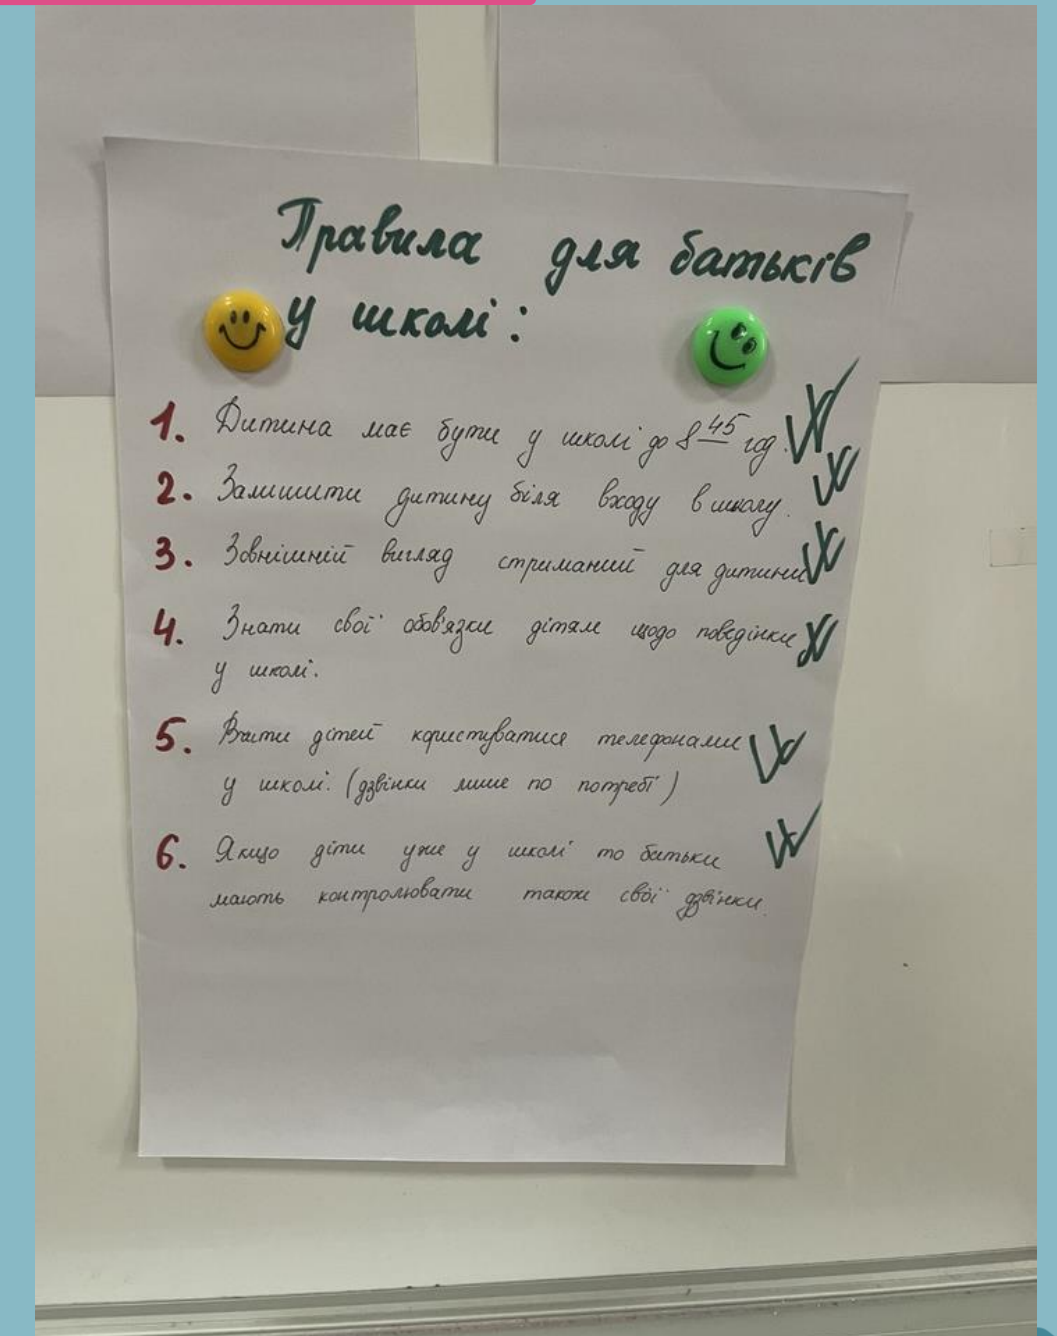 Правила для батьків
у школі:
1. Дитина має бути у школі до 8 45 год.
2. Залишити дитину біля входу в школу.
3. Зовнішній вигляд стриманий для дитини
4. Знати свої обов'язки дітям щодо поведінки
у школі.
5. Вчити дітей користуватися телефонами
у школі. (дзвінки лише по потребі)
6. Якщо діти уже у школі то батьки
мають контролювати також свої дзвінки.